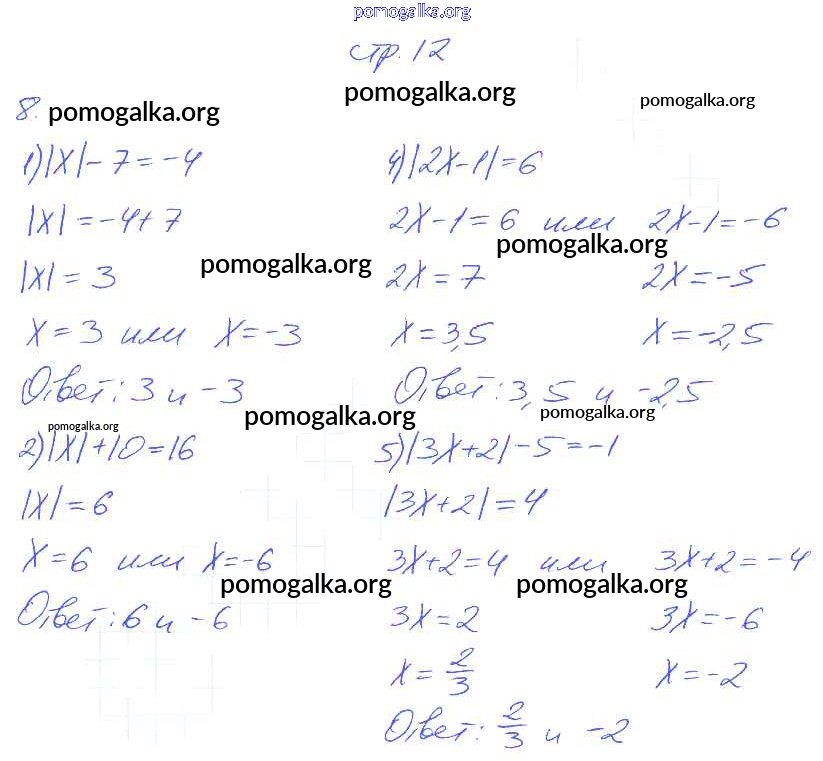 pomogalka.org
стр. 12
pomogalka.org pomogalka.org
8. pomogalka.org
1) |x| - 7 = -4
|x| = -4 + 7
|x| = 3
pomogalka.org
x = 3 или x = -3
Ответ: 3 и -3
pomogalka.org
pomogalka.org
2) |x| + 10 = 16
|x| = 6
x = 6 или x = -6
pomogalka.org
Ответ: 6 и -6
4) |2x - 1| = 6
2x - 1 = 6 или 2x - 1 = -6
pomogalka.org
2x = 7 2x = -5
x = 3,5 x = -2,5
Ответ: 3,5 и -2,5
pomogalka.org
5) |3x + 2| - 5 = -1
|3x + 2| = 4
3x + 2 = 4 или 3x + 2 = -4
pomogalka.org
3x = 2 3x = -6
x = 2/3 x = -2
Ответ: 2/3 и -2